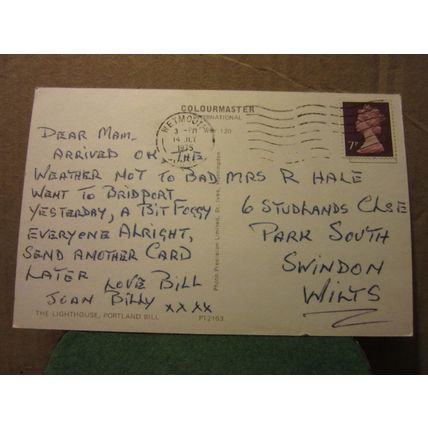 COLOURMASTER
INTERNATIONAL
WEYMOUTH
14 JLY
1975
7P
DEAR MAM.
ARRIVED OK THE
WEATHER NOT TO BAD
WENT TO BRIDPORT
YESTERDAY, A BIT FOGGY
EVERYONE ALRIGHT,
SEND ANOTHER CARD
LATER LOVE BILL
JOAN BILLY XXXX
THE LIGHTHOUSE, PORTLAND BILL
PT2163
Photo Precision Limited, St. Ives, Huntingdon
MRS R HALE
6 STUDLANDS CLSE
PARK SOUTH
SWINDON
WILTS